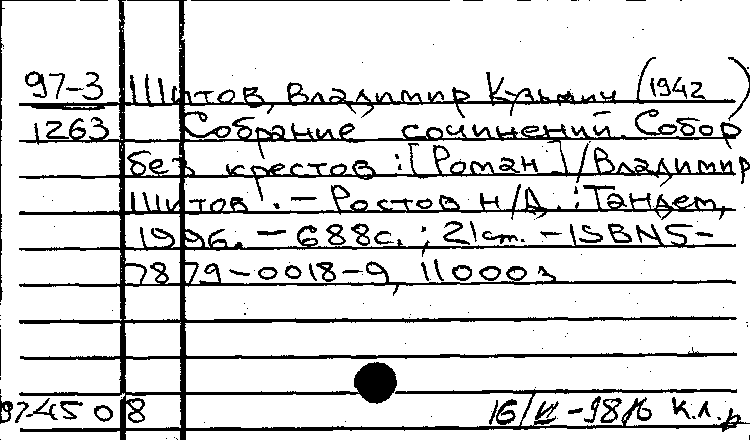 97-3 Шитов, Владимир Кузьмич (1942 )
1263 Собрание сочинений. Собор
без крестов : [Роман] / Владимир
Шитов. - Ростов н/Д. : Тандем,
1996. - 688с. ; 21см. - ISBN 5-
7879-0018-9, 11000э
97-4508 16/VI-98г К.Л.